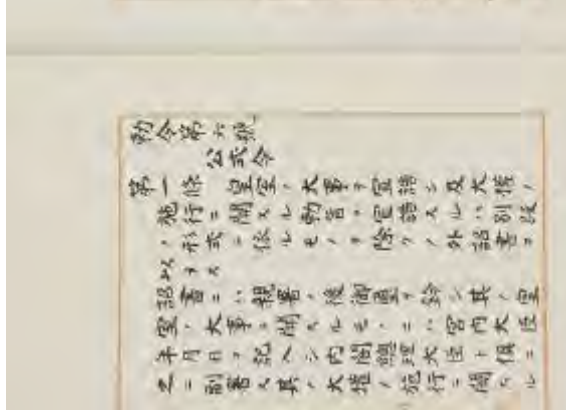 勅令第六號
公式令
第一條 皇室ノ大事ヲ宣誥シ及大權ノ
施行ニ關スル勅旨ヲ宣誥スルハ別段
ノ形式ニ依ルモノヲ除クノ外詔書ヲ
以テス
詔書ニハ親署ノ後御璽ヲ鈐シ其ノ皇
室ノ大事ニ關スルモノニハ宮内大臣
年月日ヲ記入シ内閣總理大臣ト倶ニ
之ニ副署ス其ノ大權ノ施行ニ關スル